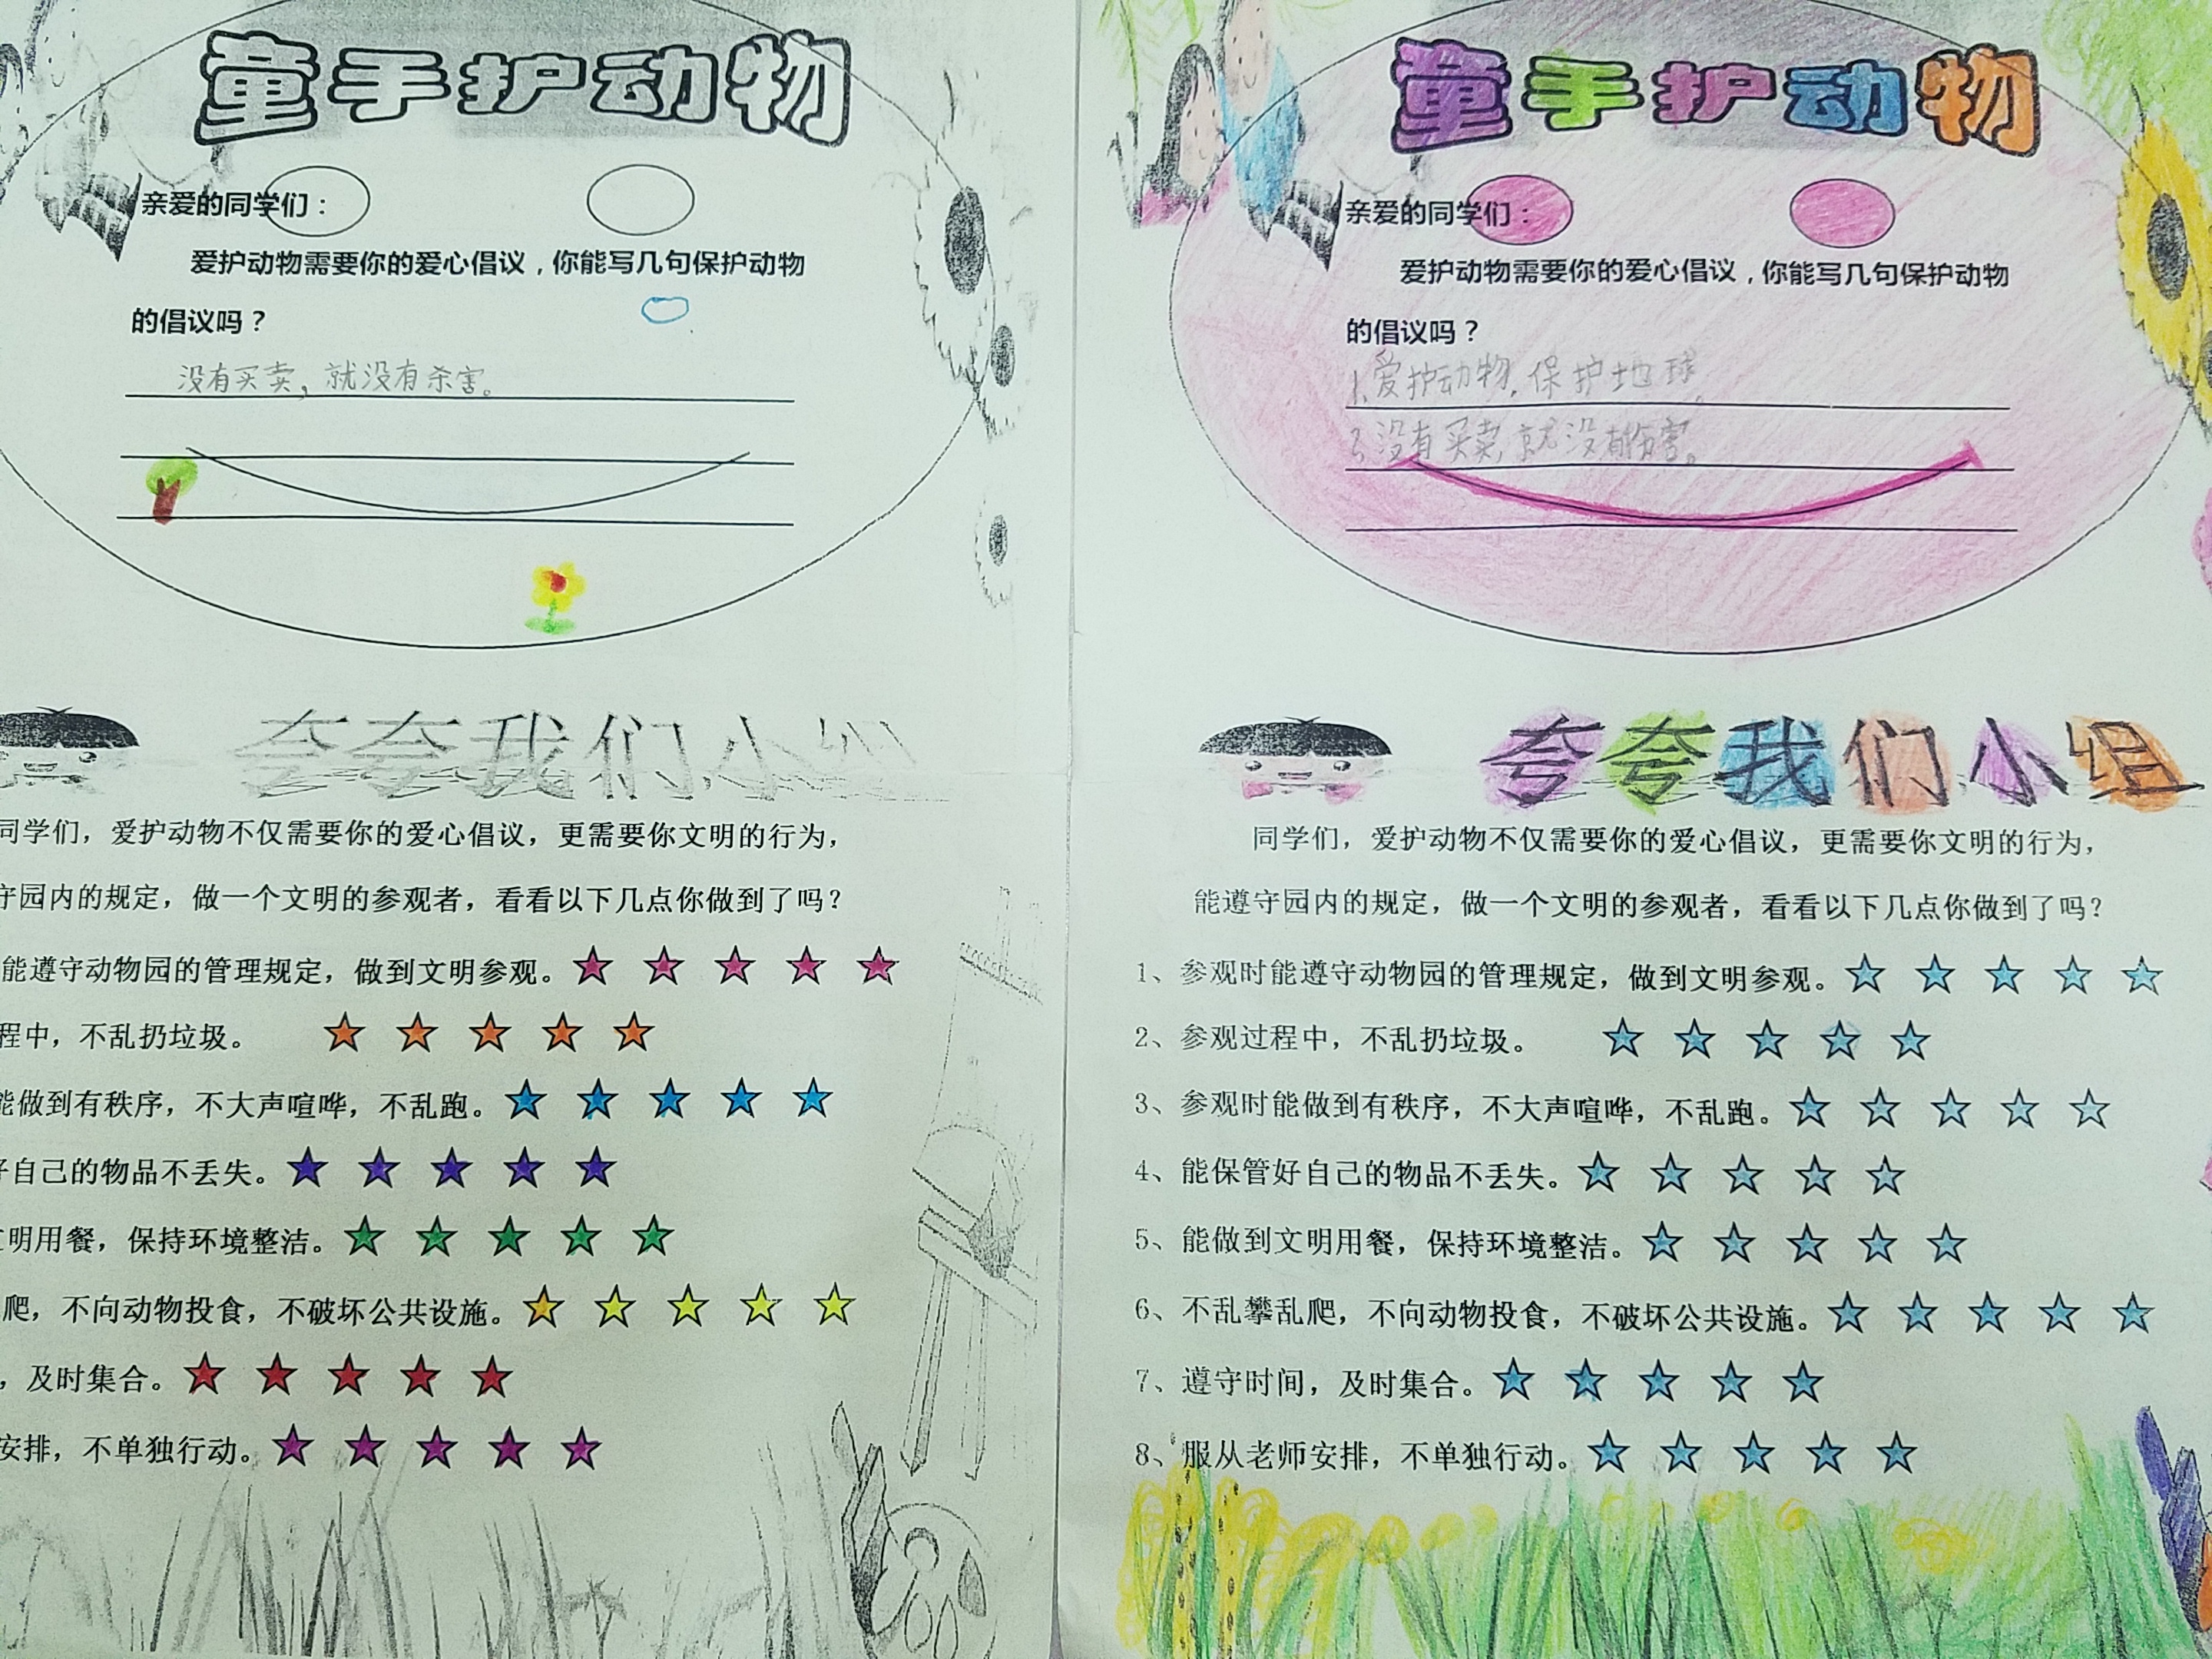 童手护动物
亲爱的同学们：
爱护动物需要你的爱心倡议，你能写几句保护动物
的倡议吗？
没有买卖，就没有杀害。
夸夸我们小组
同学们，爱护动物不仅需要你的爱心倡议，更需要你文明的行为，
守园内的规定，做一个文明的参观者，看看以下几点你做到了吗？
能遵守动物园的管理规定，做到文明参观。
程中，不乱扔垃圾。
能做到有秩序，不大声喧哗，不乱跑。
好自己的物品不丢失。
文明用餐，保持环境整洁。
爬，不向动物投食，不破坏公共设施。
，及时集合。
安排，不单独行动。
童手护动物
亲爱的同学们：
爱护动物需要你的爱心倡议，你能写几句保护动物
的倡议吗？
1、爱护动物，保护地球。
2、没有买卖，就没有伤害。
夸夸我们小组
同学们，爱护动物不仅需要你的爱心倡议，更需要你文明的行为，
能遵守园内的规定，做一个文明的参观者，看看以下几点你做到了吗？
1、参观时能遵守动物园的管理规定，做到文明参观。
2、参观过程中，不乱扔垃圾。
3、参观时能做到有秩序，不大声喧哗，不乱跑。
4、能保管好自己的物品不丢失。
5、能做到文明用餐，保持环境整洁。
6、不乱攀乱爬，不向动物投食，不破坏公共设施。
7、遵守时间，及时集合。
8、服从老师安排，不单独行动。